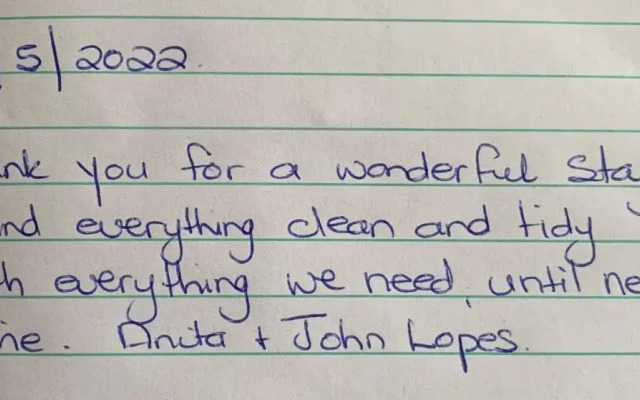 5/2022.
nk you for a wonderful sta
nd everything clean and tidy
h everything we need, until ne
ne. Anita + John Lopes.